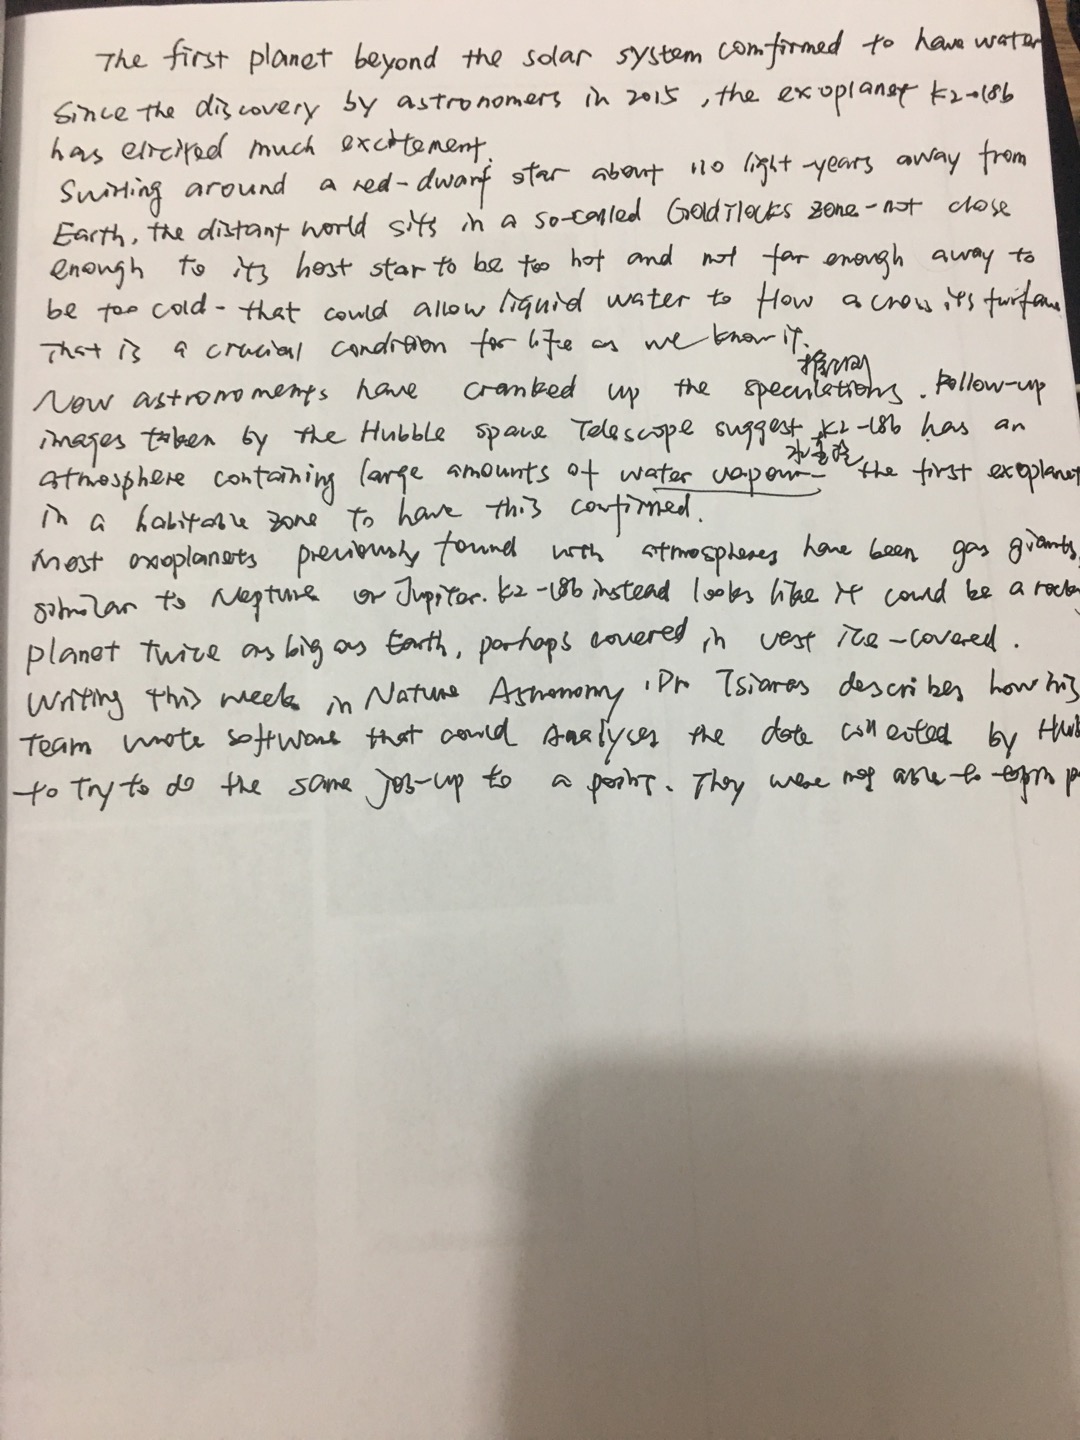 The first planet beyond the solar system comfirmed to have water
Since the discovery by astronomers in 2015, the exoplanet K2-18b
has elicited much excitement.
Swirling around a red-dwarf star about 110 light-years away from
Earth, the distant world sits in a so-called Goldilocks zone-not close
enough to its host star to be too hot and not far enough away to
be too cold-that could allow liquid water to flow across its
That is a crucial condition for life as we know it.
推测
Now astronoments have cranked up the speculations. Follow-up
images taken by the Hubble space Telescope suggest K2-18b has an
水蒸气
atmosphere containing large amounts of water vapour- the first exoplanet
in a habitable zone to have this confirmed.
Most exoplanets previously found with atmospheres have been gas giants,
similar to Neptune or Jupiter. K2-18b instead looks like it could be a rocky
planet twice as big as Earth, perhaps covered in vast ice-covered.
Writing this week in Nature Astronomy, Dr Tsiaras describes how his
Team wrote software that could Analyses the date collected by
to try to do the same job-up to a point. They were not able to